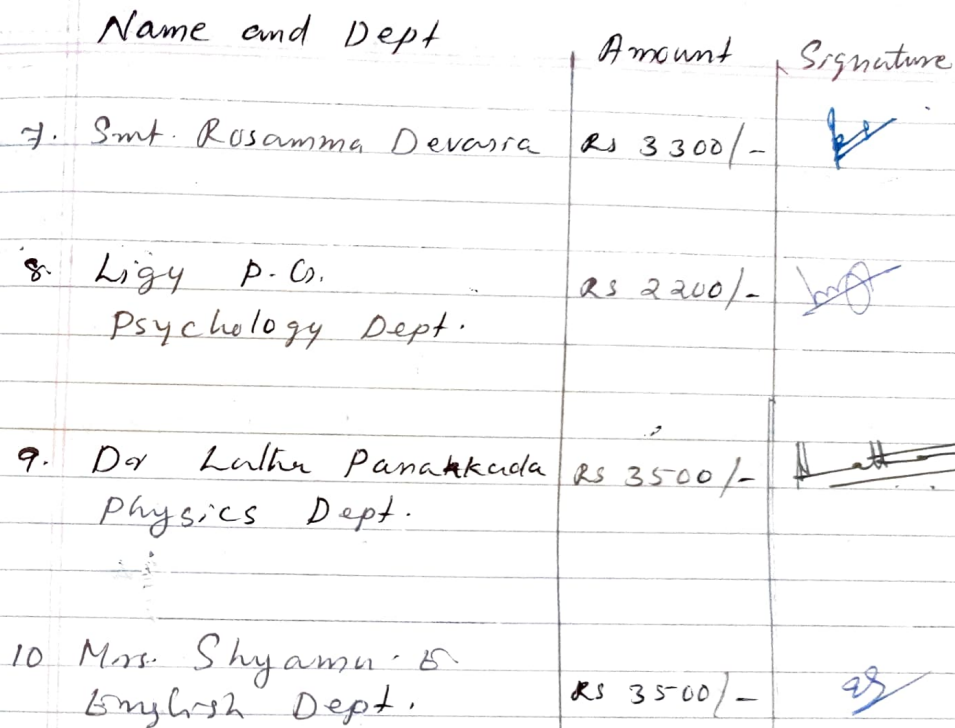 Name and Dept Amount Signature
7. Smt. Rosamma Devasia Rs 3300/-
8. Ligy P. G. Rs 2200/-
Psychology Dept.
9. Dr Latha Panakkada Rs 3500/-
Physics Dept.
10 Mrs. Shyama. E
English Dept. Rs 3500/-